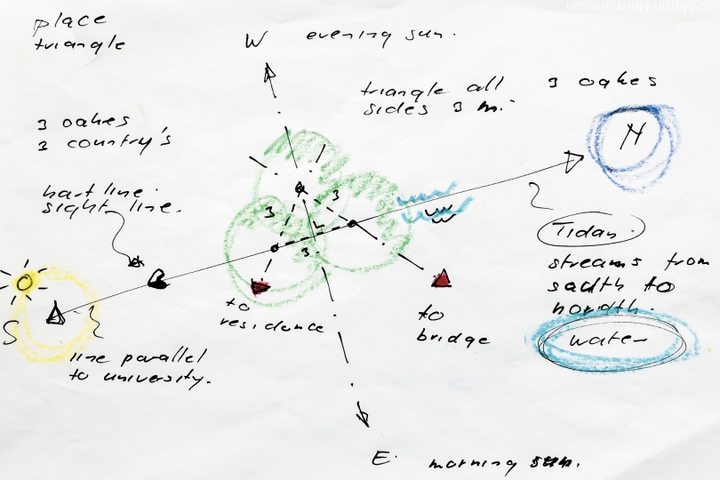 place
triangle
W evening sun.
triangle all
sides 3 m.
3 oakes
3 oakes
3 country's
hart line
sight line.
N
3
3
3
W
Tidan.
streams from
sadth to
nordth.
water
S
to
residence
to
bridge
line parallel
to university.
E. morning sun.